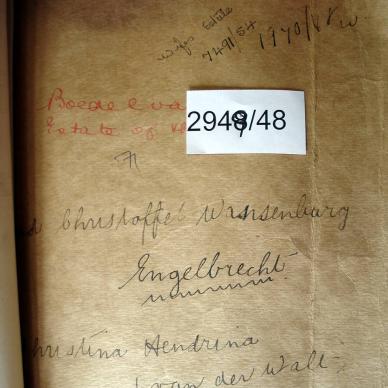 Wife's Estate
7491/54
1970/48 W
Boedel va
Estate of
2949/48
Christoffel Wansenburg
Engelbrecht
hristina Hendrina
van der Walt